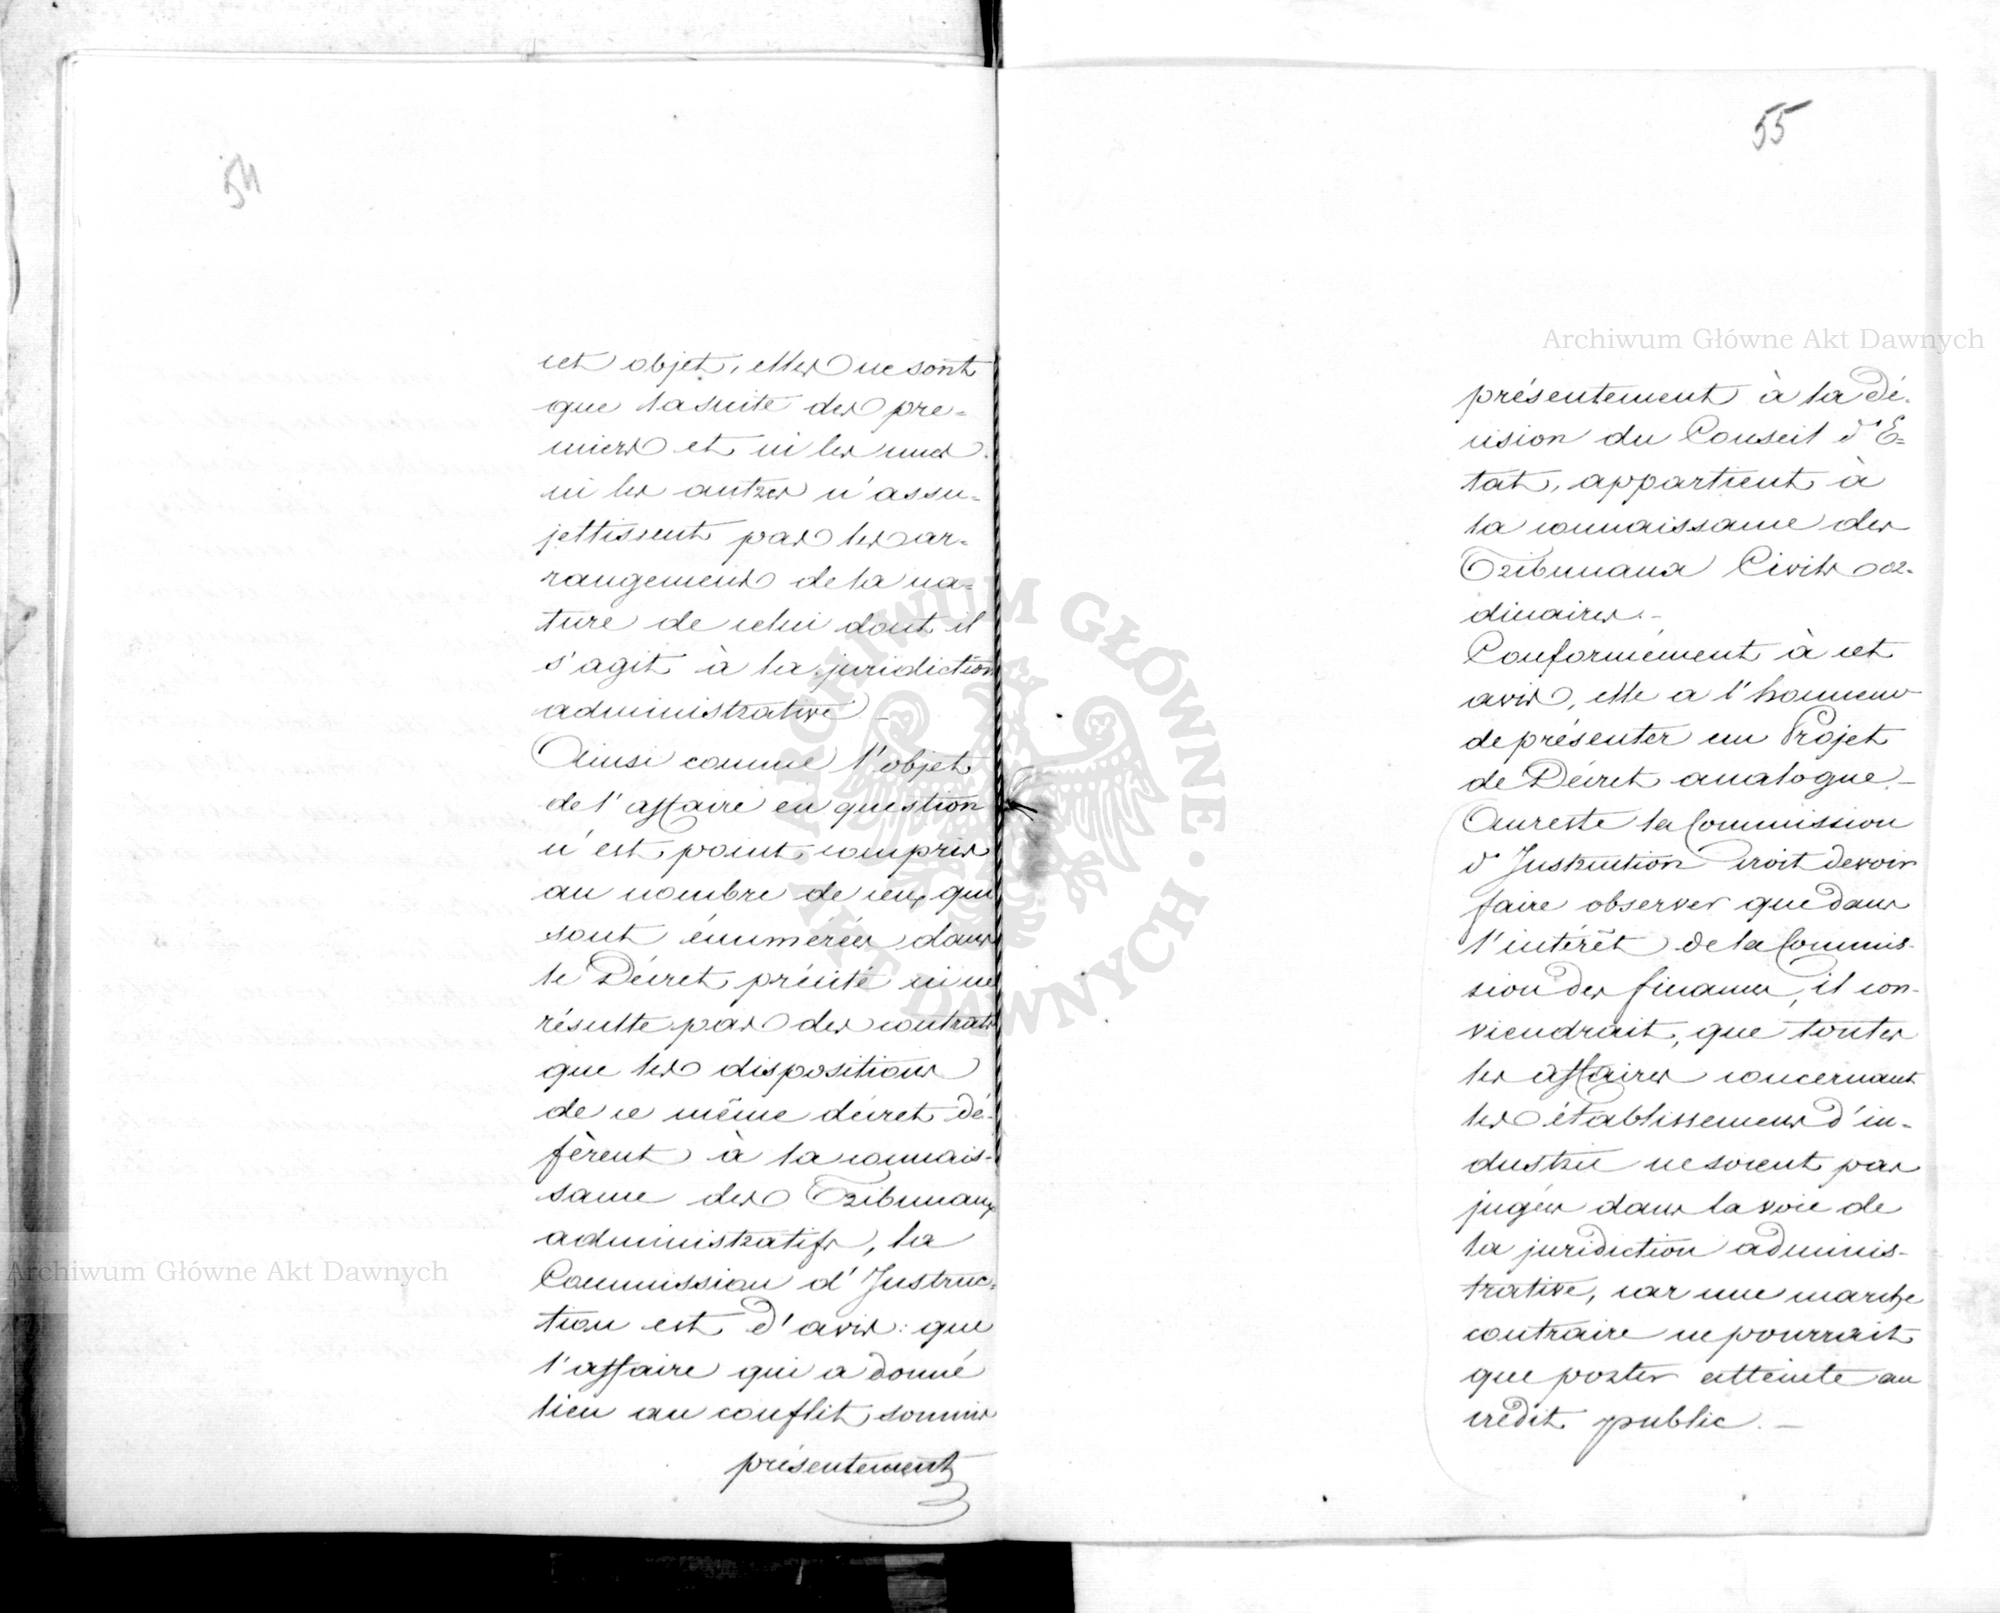 54
cet objet, elles ne sont
que la suite des pre=
miers et ni les unes
ni les autres n'assu=
jettissent pas les ar=
rangements de la na=
ture de celui dont il
s'agit à la juridiction
administrative. —
Ainsi comme l'objet
de l'affaire en question
n'est point compris
au nombre de ceux qui
sont énumérées dans
le Décret précité ni ne
résulte pas des contrats
que les dispositions
de ce même décret dé-
fèrent à la connais-
sance des Tribunaux
administratifs, la
Commission d'Instruc-
tion est d'avis: que
l'affaire qui a donné
lieu au conflit, soumis
présentement
55
présentement à la dé-
cision du Conseil d'E=
tat, appartient à
la connaissance des
Tribunaux Civils or-
dinaires. —
Conformément à cet
avis, elle a l'honneur
de présenter un Projet
de Décret analogue. —
Au reste la Commission
d'Instruction croit devoir
faire observer que dans
l'intérêt de la Commis-
sion des finances, il con-
viendrait, que toutes
les affaires concernant
les établissemens d'in-
dustrie ne soient pas
jugées dans la voie de
la juridiction adminis-
trative, car une marche
contraire ne pourrait
que porter atteinte au
crédit public. —
Archiwum Główne Akt Dawnych
Archiwum Główne Akt Dawnych
ARCHIWUM GŁÓWNE · AKT DAWNYCH ·